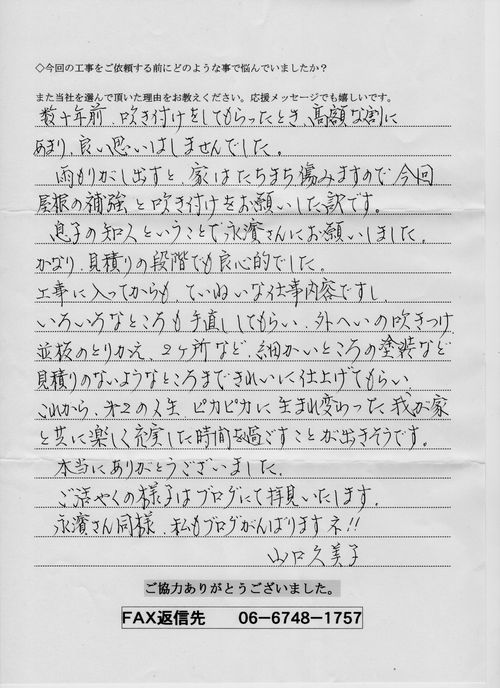 ◇今回の工事をご依頼する前にどのような事で悩んでいましたか？
また当社を選んで頂いた理由をお教えください。応援メッセージでも嬉しいです。
数十年前、吹き付けをしてもらったとき、高額な割に
あまり、良い思いはしませんでした。
雨もりがし出すと、家はたちまち傷みますので今回
屋根の補強と吹き付けをお願いした訳です。
息子の知人ということで永濱さんにお願いしました。
かなり、見積りの段階でも良心的でした。
工事に入ってからも、ていねいな仕事内容ですし、
いろいろなところも手直ししてもらい、外へいの吹きつけ、
並板のとりかえ、2ヶ所など、細かいところの塗装など
見積りのないようなところまできれいに仕上げてもらい、
これから、第2の人生、ピカピカに生まれ変わった我が家
と共に楽しく充実した時間を過ごすことが出きそうです。
本当にありがとうございました。
ご活やくの様子はブログにて拝見いたします。
永濱さん同様、私もブログがんばりますネ!!
山口久美子
ご協力ありがとうございました。
FAX返信先 06-6748-1757